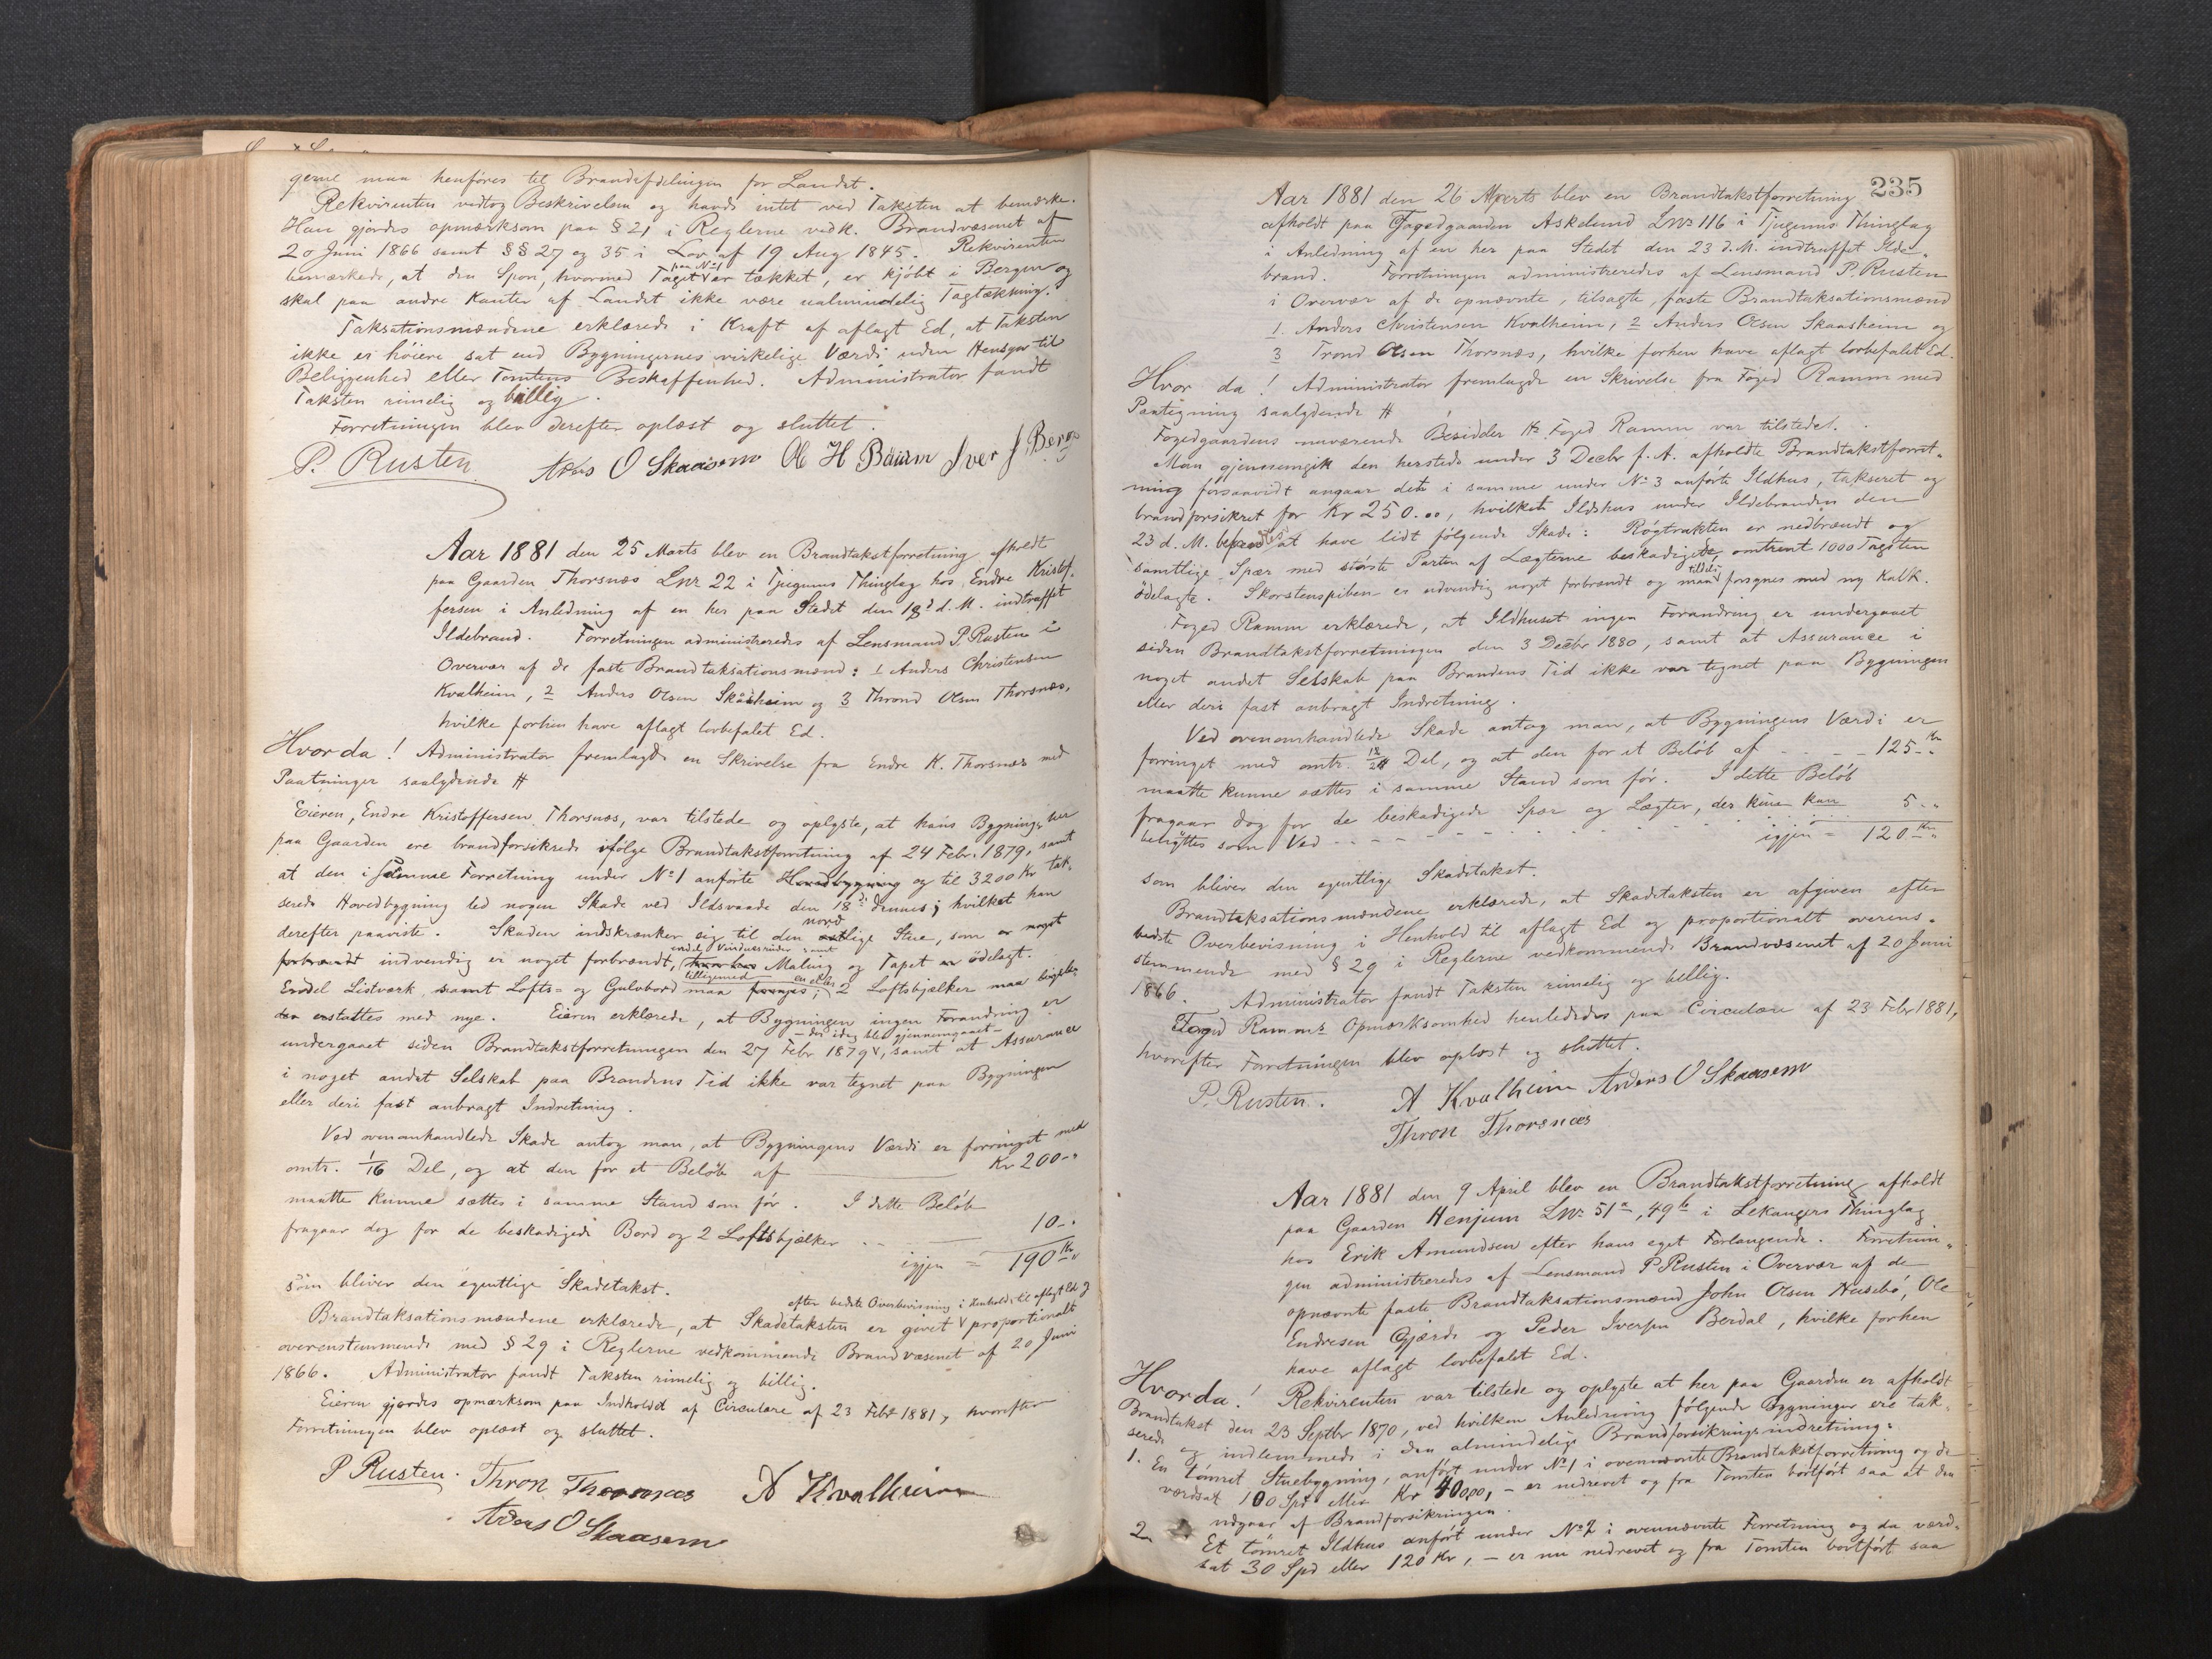 gerne maa henføres til Brandafdelingen for Landet.
Rekvirenten vedtog Beskrivelsen og havde intet ved Taksten at bemærke.
Han gjordes opmærksom paa § 21 i Reglerne vedk. Brandvæsenet af
20 Juni 1866 samt §§ 27 og 35 i Lov af 19 Aug 1845. Rekvirenten
bemærkede, at den Spon, hvormed Taget paa No 1 var tækket, er kjøbt i Bergen og
skal paa andre Kanter af Landet ikke være ualmindelig Tagtækning.
Taksationsmændene erklærede i Kraft af aflagt Ed, at Taksten
ikke er høiere sat end Bygningernes virkelige Værdi uden Hensyn til
Beliggenhed eller Tomtens Beskaffenhed. Administrator fandt
Taksten rimelig og billig.
Forretningen blev derefter oplæst og sluttet.
P. Rusten Anders O Skaasem Ole H Iver J. Berge
Aar 1881 den 25 Marts blev en Brandtakstforretning afholdt
paa Gaarden Thorsnæs Lnr 22 i Tjugums Thinglag hos Endre Kristof-
fersen i Anledning af en her paa Stedet den 18d d. M. indtruffet
Ildebrand. Forretningen administreredes af Lensmand P. Rusten i
Overvær af de faste Brandtaksationsmænd: 1 Anders Christensen
Kvalheim, 2 Anders Olsen Skåsheim og 3 Thrond Olsen Thorsnæs,
hvilke forhen have aflagt lovbefalet Ed.
Hvor da! Administrator fremlagde en Skrivelse fra Endre K. Thorsnæs med
Paategninger saalydende #
Eieren, Endre Kristoffersen Thorsnæs, var tilstede og oplyste, at hans Bygninger her
paa Gaarden ere brandforsikrede ifølge Brandtakstforretning af 24 Febr. 1879, samt
at den i samme Forretning under No 1 anførte Hovedbygning og til 3200 Kr tak-
serede Hovedbygning led nogen Skade ved Ildsvaade den 18de dennes; hvilket han
derefter paaviste. Skaden indskrænker sig til den nordlige Stue, som er noget
forbrændt indvendig er noget forbrændt, endel Vinduesruder samt Maling og Tapet er ødelagt.
Endel Listværk samt Lofts- og Gulvbord tilligemed en eller 2 Loftsbjælker maa ligele-
des erstattes med nye. Eieren erklærede, at Bygningen ingen Forandring er
undergaaet siden Brandtakstforretningen den 27 Febr 1879, - der idag blev gjennemgaaet - samt at Assurance
i noget andet Selskab paa Brandens Tid ikke var tegnet paa Bygningen
eller deri fast anbragt Indretning.
Ved ovenomhandlede Skade antog man, at Bygningens Værdi er forringet med
omtr. 1/16 Del, og at den for et Beløb af Kr 200-"
maatte kunne sættes i samme Stand som før. I dette Beløb
fragaar dog for de beskadigede Bord og 2 Loftsbjælker - - 10-"
igjen = 190 Kr "
som bliver den egentlige Skadetakst.
Brandtaksationsmændene erklærede, at Skadetaksten er givet efter bedste Overbevisning i Henhold til aflagt Ed og proportionalt
overenstemmende med § 29 i Reglerne vedkommende Brandvæsenet af 20 Juni
1866. Administrator fandt Taksten rimelig og billig.
Eieren gjordes opmærksom paa Indholdet af Circulære af 23 Febr 1881, hvorefter
Forretningen blev oplæst og sluttet.
P Rusten. Thron Thorsnæs A Kvalheim
Anders O Skaasem
235
Aar 1881 den 26 Marts blev en Brandtakstforretning
afholdt paa Fogedgaarden Askelund LNo 116 i Tjugums Thinglag
i Anledning af en her paa Stedet den 23 d. M. indtruffet Ilde-
brand. Forretningen administreredes af Lensmand P. Rusten
i Overvær af de opnævnte, tilsagte, faste Brandtaksationsmænd
1. Anders Christensen Kvalheim, 2 Anders Olsen Skaasheim og
3 Trond Olsen Thorsnæs, hvilke forhen have aflagt lovbefalet Ed.
Hvor da! Administrator fremlagde en Skrivelse fra Foged Ramm med
Paategning saalydende #
Fogedgaardens nuværende Besidder Hr. Foged Ramm var tilstede.
Man gjennemgik den hersteds under 3 Decbr f. A. afholdte Brandtakstforret-
ning forsaavidt angaar det i samme under No 3 anførte Ildhus, takseret og
brandforsikret for Kr 250.00, hvilket Ildshus under Ildebranden den
23 d. M. befandtes at have lidt følgende Skade: Røgtrakten er nedbrændt og
samtlige Spær med største Parten af Lægterne beskadigede, omtrent 1000 Tagsten
ødelagte. Skorstenspiben er udvendig noget forbrændt og maa tildels forsynes med ny Kalk.
Foged Ramm erklærede, at Ildhuset ingen Forandring er undergaaet
siden Brandtakstforretningen den 3 Decbr 1880, samt at Assurance i
noget andet Selskab paa Brandens Tid ikke var tegnet paa Bygningen
eller deri fast anbragt Indretning.
Ved ovenomhandlede Skade antog man, at Bygningens Værdi er
forringet med omtr. 12/24 Del, og at den for et Beløb af - - - - 125-Kr "
maatte kunne sættes i samme Stand som før. I dette Beløb
fragaar dog for de beskadigede Spær og Lægter, der kun kan
benyttes som Ved - - - - 5-"
igjen = 120 Kr "
som bliver den egentlige Skadetakst.
Brandtaksationsmændene erklærede, at Skadetaksten er afgiven efter
bedste Overbevisning i Henhold til aflagt Ed og proportionalt overens-
stemmende med § 29 i Reglerne vedkommende Brandvæsenet af 20 Juni
1866. Administrator fandt Taksten rimelig og billig.
Foged Ramms Opmærksomhed henlededes paa Circulære af 23 Febr 1881,
hvorefter Forretningen blev oplæst og sluttet.
P. Rusten. A Kvalheim Anders O Skaasem
Thron Thorsnæs
Aar 1881 den 9 April blev en Brandtakstforretning afholdt
paa Gaarden Henjum LNo 51a, 49b i Lekangers Thinglag
hos Erik Amundsen efter hans eget Forlangende. Forretnin-
gen administreredes af Lensmand P Rusten i Overvær af de
opnævnte faste Brandtaksationsmænd John Olsen Husebø, Ole
Endresen Gjærde og Peder Iversen Berdal, hvilke forhen
have aflagt lovbefalet Ed.
Hvor da! Rekvirenten var tilstede og oplyste at her paa Gaarden er afholdt
Brandtakst den 23 Septbr 1870, ved hvilken Anledning følgende Bygninger ere tak-
serede og indlemmede i den almindelige Brandforsikringsindretning:
1. En tømret Stuebygning, anført under No 1 i ovennævnte Brandtakstforretning og da
værdsat 100 Spd eller Kr 400,00, - er nedrevet og fra Tomten bortført saa at den
udgaar af Brandforsikringen.
2. Et tømret Ildhus anført under No 2 i ovennævnte Forretning og da værd-
sat 30 Spd eller 120 Kr, - er nu nedrevet og fra Tomten bortført saa